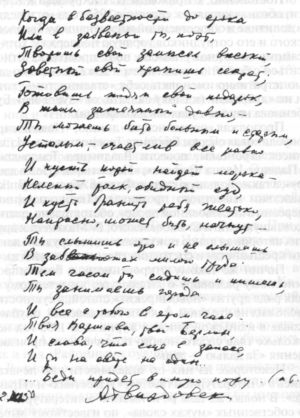 Когда в безвестности до срока
Или в забвенье ты, поэт,
Творишь свой замысел высокий
Заветный свой хранишь секрет,
Готовишь людям свой подарок,
В тиши задуманный давно, –
Ты можешь быть больным и старым,
Усталым – счастлив все равно
И пусть найдет морока –
Нелепый толк, обидный суд,
И пусть бранить тебя жестоко,
Напрасно, может быть, начнут –
Ты слышишь это и не слышишь
В заботах милого труда.
Тем часом ты сидишь и пишешь,
Ты занимаешь города
И все с тобою в этом часе
Твоя Варшава, твой Берлин
И слава, что еще в запасе,
И ты на свете не один.
А Твардовский